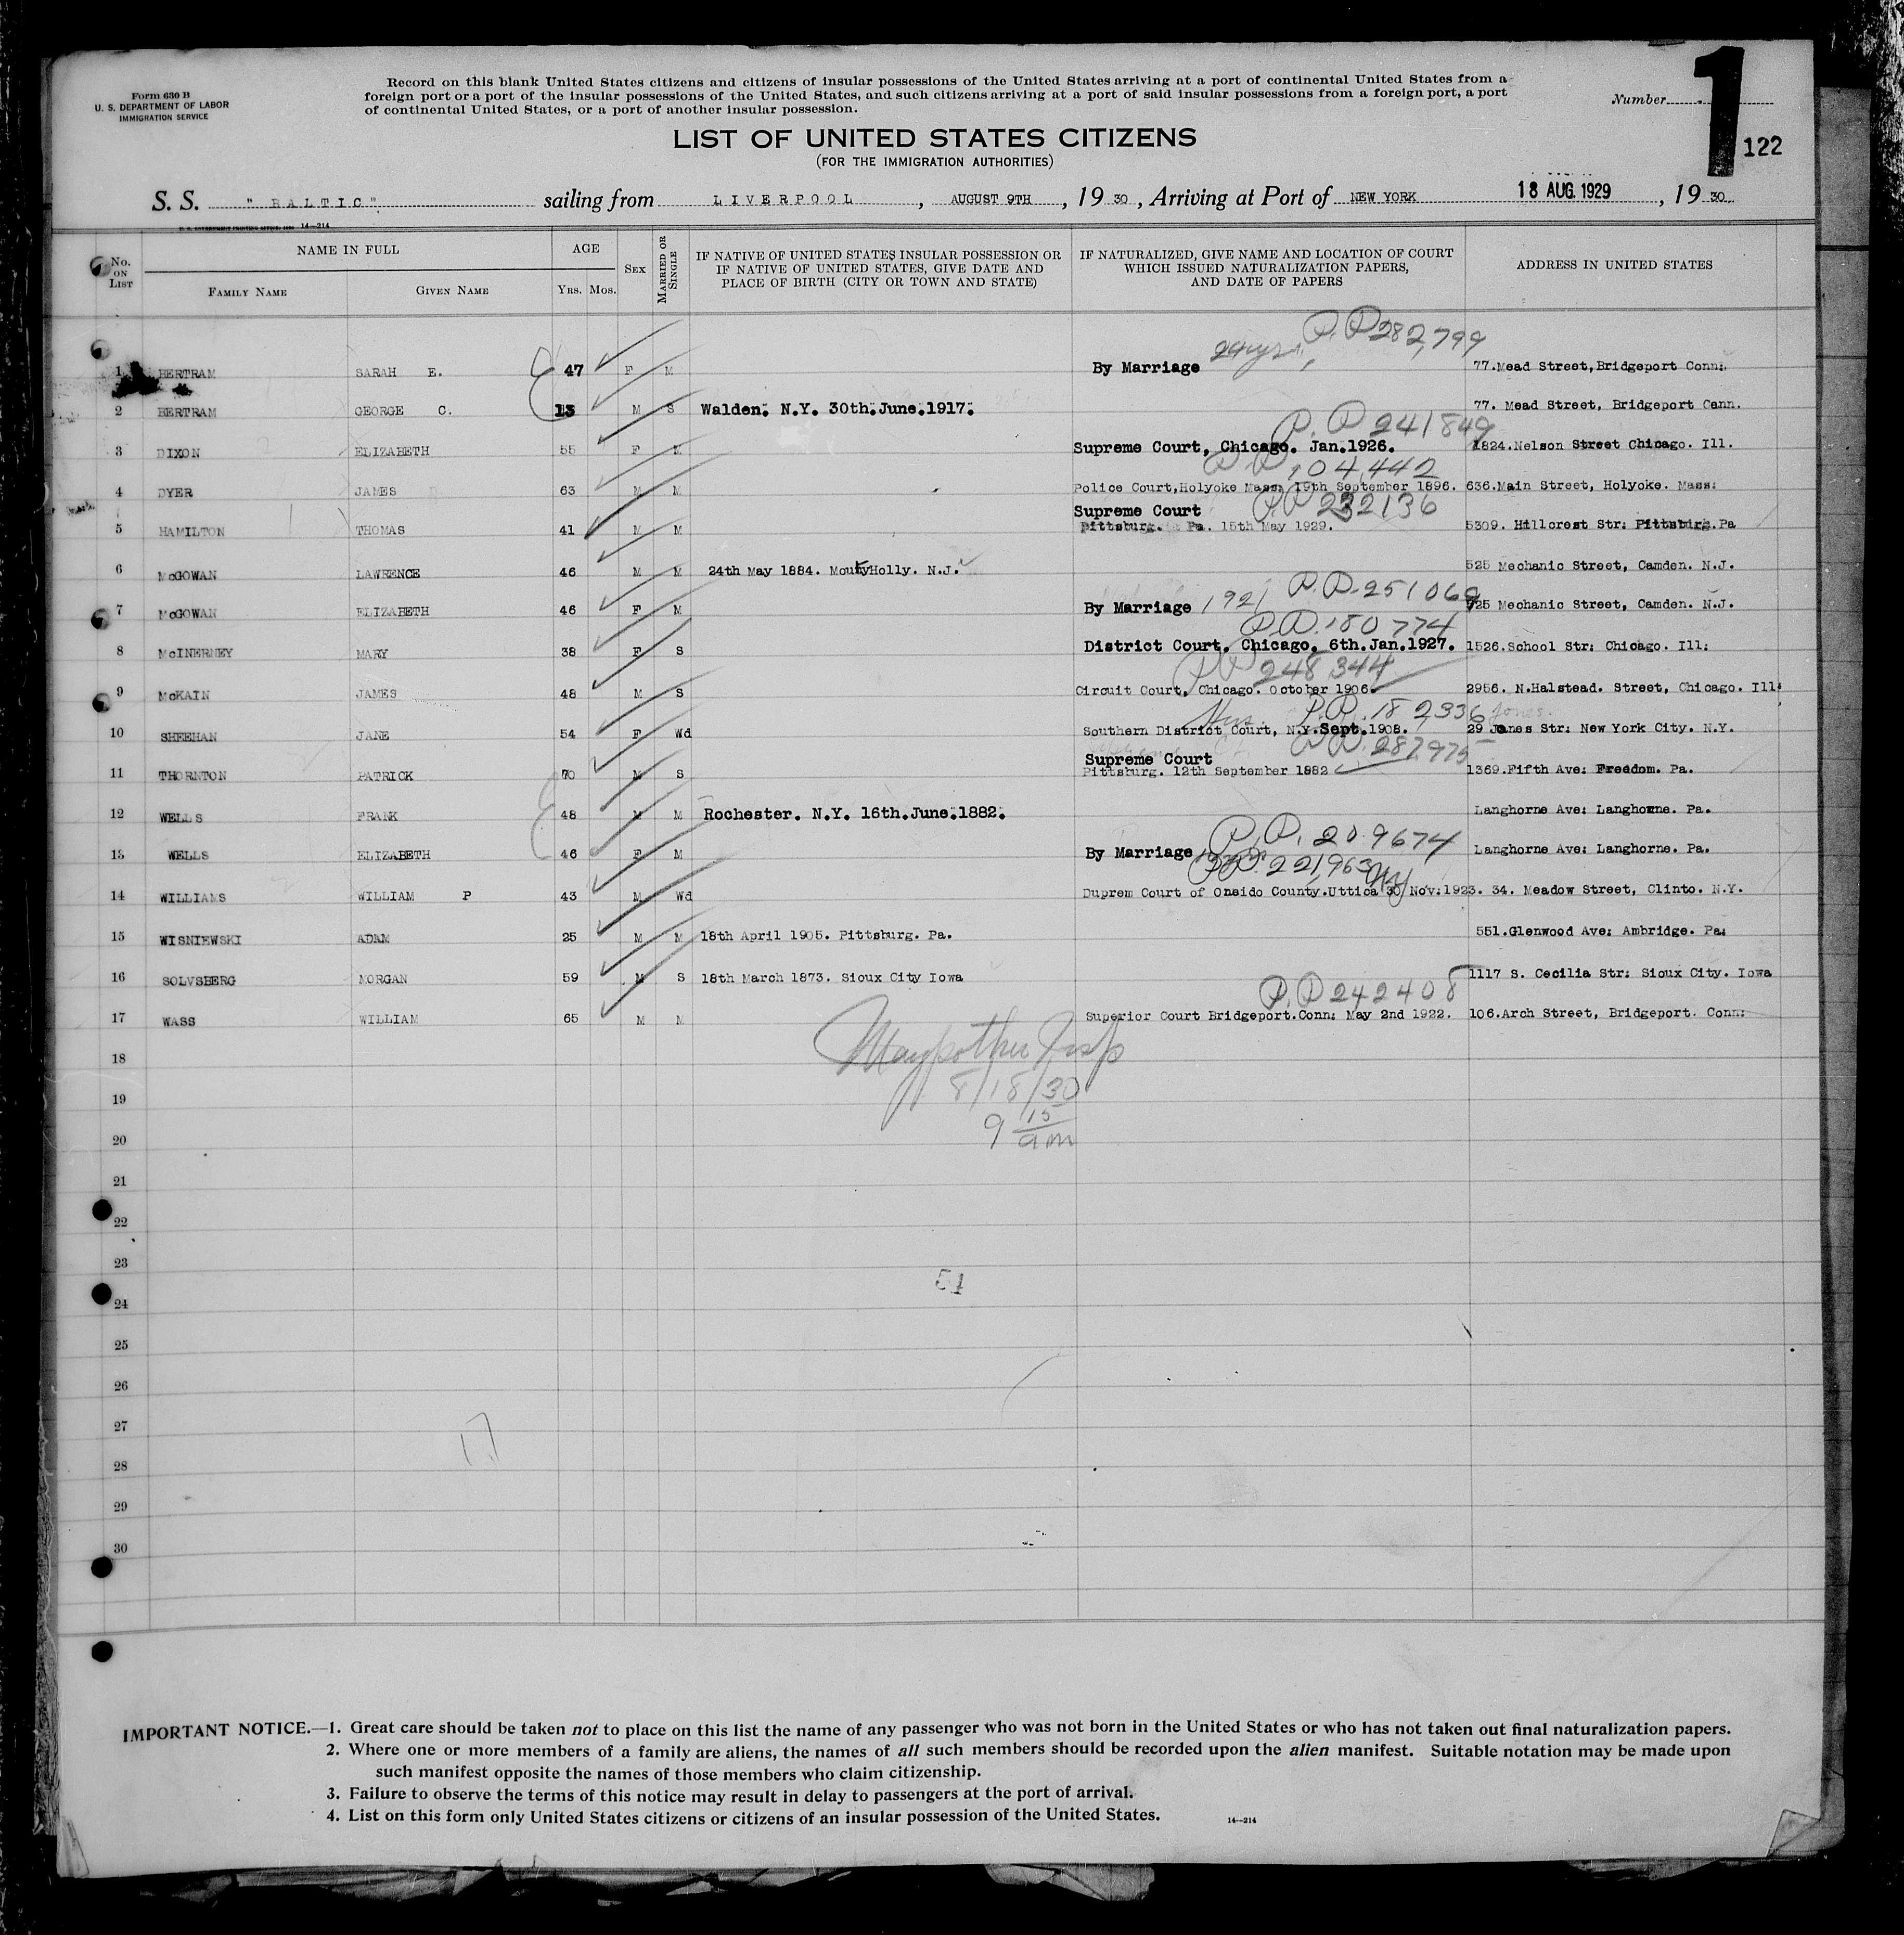 Form 630 B
U. S. DEPARTMENT OF LABOR
IMMIGRATION SERVICE
Record on this blank United States citizens and citizens of insular possessions of the United States arriving at a port of continental United States from a
foreign port or a port of the insular possessions of the United States, and such citizens arriving at a port of said insular possessions from a foreign port, a port
of continental United States, or a port of another insular possession.
Number
1
122
LIST OF UNITED STATES CITIZENS
(FOR THE IMMIGRATION AUTHORITIES)
S. S. " BALTIC" sailing from LIVERPOOL , AUGUST 9TH , 19 30 , Arriving at Port of NEW YORK 18 AUG. 1929 , 19 30
14—214
No. ON LIST
NAME IN FULL
FAMILY NAME GIVEN NAME
AGE
YRS. MOS.
SEX
MARRIED OR SINGLE
IF NATIVE OF UNITED STATES INSULAR POSSESSION OR
IF NATIVE OF UNITED STATES, GIVE DATE AND
PLACE OF BIRTH (CITY OR TOWN AND STATE)
IF NATURALIZED, GIVE NAME AND LOCATION OF COURT
WHICH ISSUED NATURALIZATION PAPERS,
AND DATE OF PAPERS
ADDRESS IN UNITED STATES
P.P. 282,799
1 BERTRAM SARAH E. 47 F M By Marriage 24 yrs. 77.Mead Street,Bridgeport Conn:
2 BERTRAM GEORGE C. 13 M S Walden. N.Y. 30th.June.1917. 77. Mead Street, Bridgeport Cann.
P.P 241849
3 DIXON ELIZABETH 55 F M Supreme Court, Chicago. Jan.1926. 1824.Nelson Street Chicago. Ill.
P.P 104,442
4 DYER JAMES 63 M M Police Court,Holyoke Mass. 19th September 1896. 636.Main Street, Holyoke. Mass:
Supreme Court PP 232136
5 HAMILTON THOMAS 41 M M Pittsburg. Pa. 15th May 1929. 5309. Hillcrest Str: Pittsburg.Pa
6 McGOWAN LAWRENCE 46 M M 24th May 1884. MountyHolly. N.J. 525 Mechanic Street, Camden. N.J.
P.P. 251069
7 McGOWAN ELIZABETH 46 F M By Marriage 1921 525 Mechanic Street, Camden. N.J.
P.P. 180774
8 McINERNEY MARY 38 F S District Court. Chicago. 6th.Jan.1927. 1526.School Str: Chicago. Ill:
PP 248344
9 McKAIN JAMES 48 M S Circuit Court, Chicago. October 1906. 2956. N.Halstead. Street, Chicago. Ill:
Hus. P.P. 182336 Jones.
10 SHEEHAN JANE 54 F Wd Southern District Court, N.Y.Sept.1908. 29 Janes Str: New York City. N.Y.
Supreme Court P.P. 287975
11 THORNTON PATRICK 70 M S Pittsburg. 12th September 1882 1369.Fifth Ave: Freedom. Pa.
12 WELLS FRANK 48 M M Rochester. N.Y. 16th.June.1882. Langhorne Ave: Langhorne. Pa.
P.P. 209674
13 WELLS ELIZABETH 46 F M By Marriage Langhorne Ave: Langhorne. Pa.
PP. 221963 NY
14 WILLIAMS WILLIAM P 43 M Wd Duprem Court of Oneido County.Uttica 30 Nov:1923. 34. Meadow Street, Clinto. N.Y.
15 WISNIEWSKI ADAM 25 M M 18th April 1905. Pittsburg. Pa. 551.Glenwood Ave: Ambridge. Pa:
16 SOLVSBERG MORGAN 59 M S 18th March 1873. Sioux City Iowa 1117 S. Cecilia Str: Sioux City. Iowa
P.P 242408
17 WASS WILLIAM 65 M M Superior Court Bridgeport.Conn: May 2nd 1922. 106.Arch Street, Bridgeport. Conn:
18
Maypother Insp
19
8/18/30
20
9 15 am
21
22
23
51
24
25
26
27
17
28
29
30
IMPORTANT NOTICE.—1. Great care should be taken not to place on this list the name of any passenger who was not born in the United States or who has not taken out final naturalization papers.
2. Where one or more members of a family are aliens, the names of all such members should be recorded upon the alien manifest. Suitable notation may be made upon
such manifest opposite the names of those members who claim citizenship.
3. Failure to observe the terms of this notice may result in delay to passengers at the port of arrival.
4. List on this form only United States citizens or citizens of an insular possession of the United States.
14—214